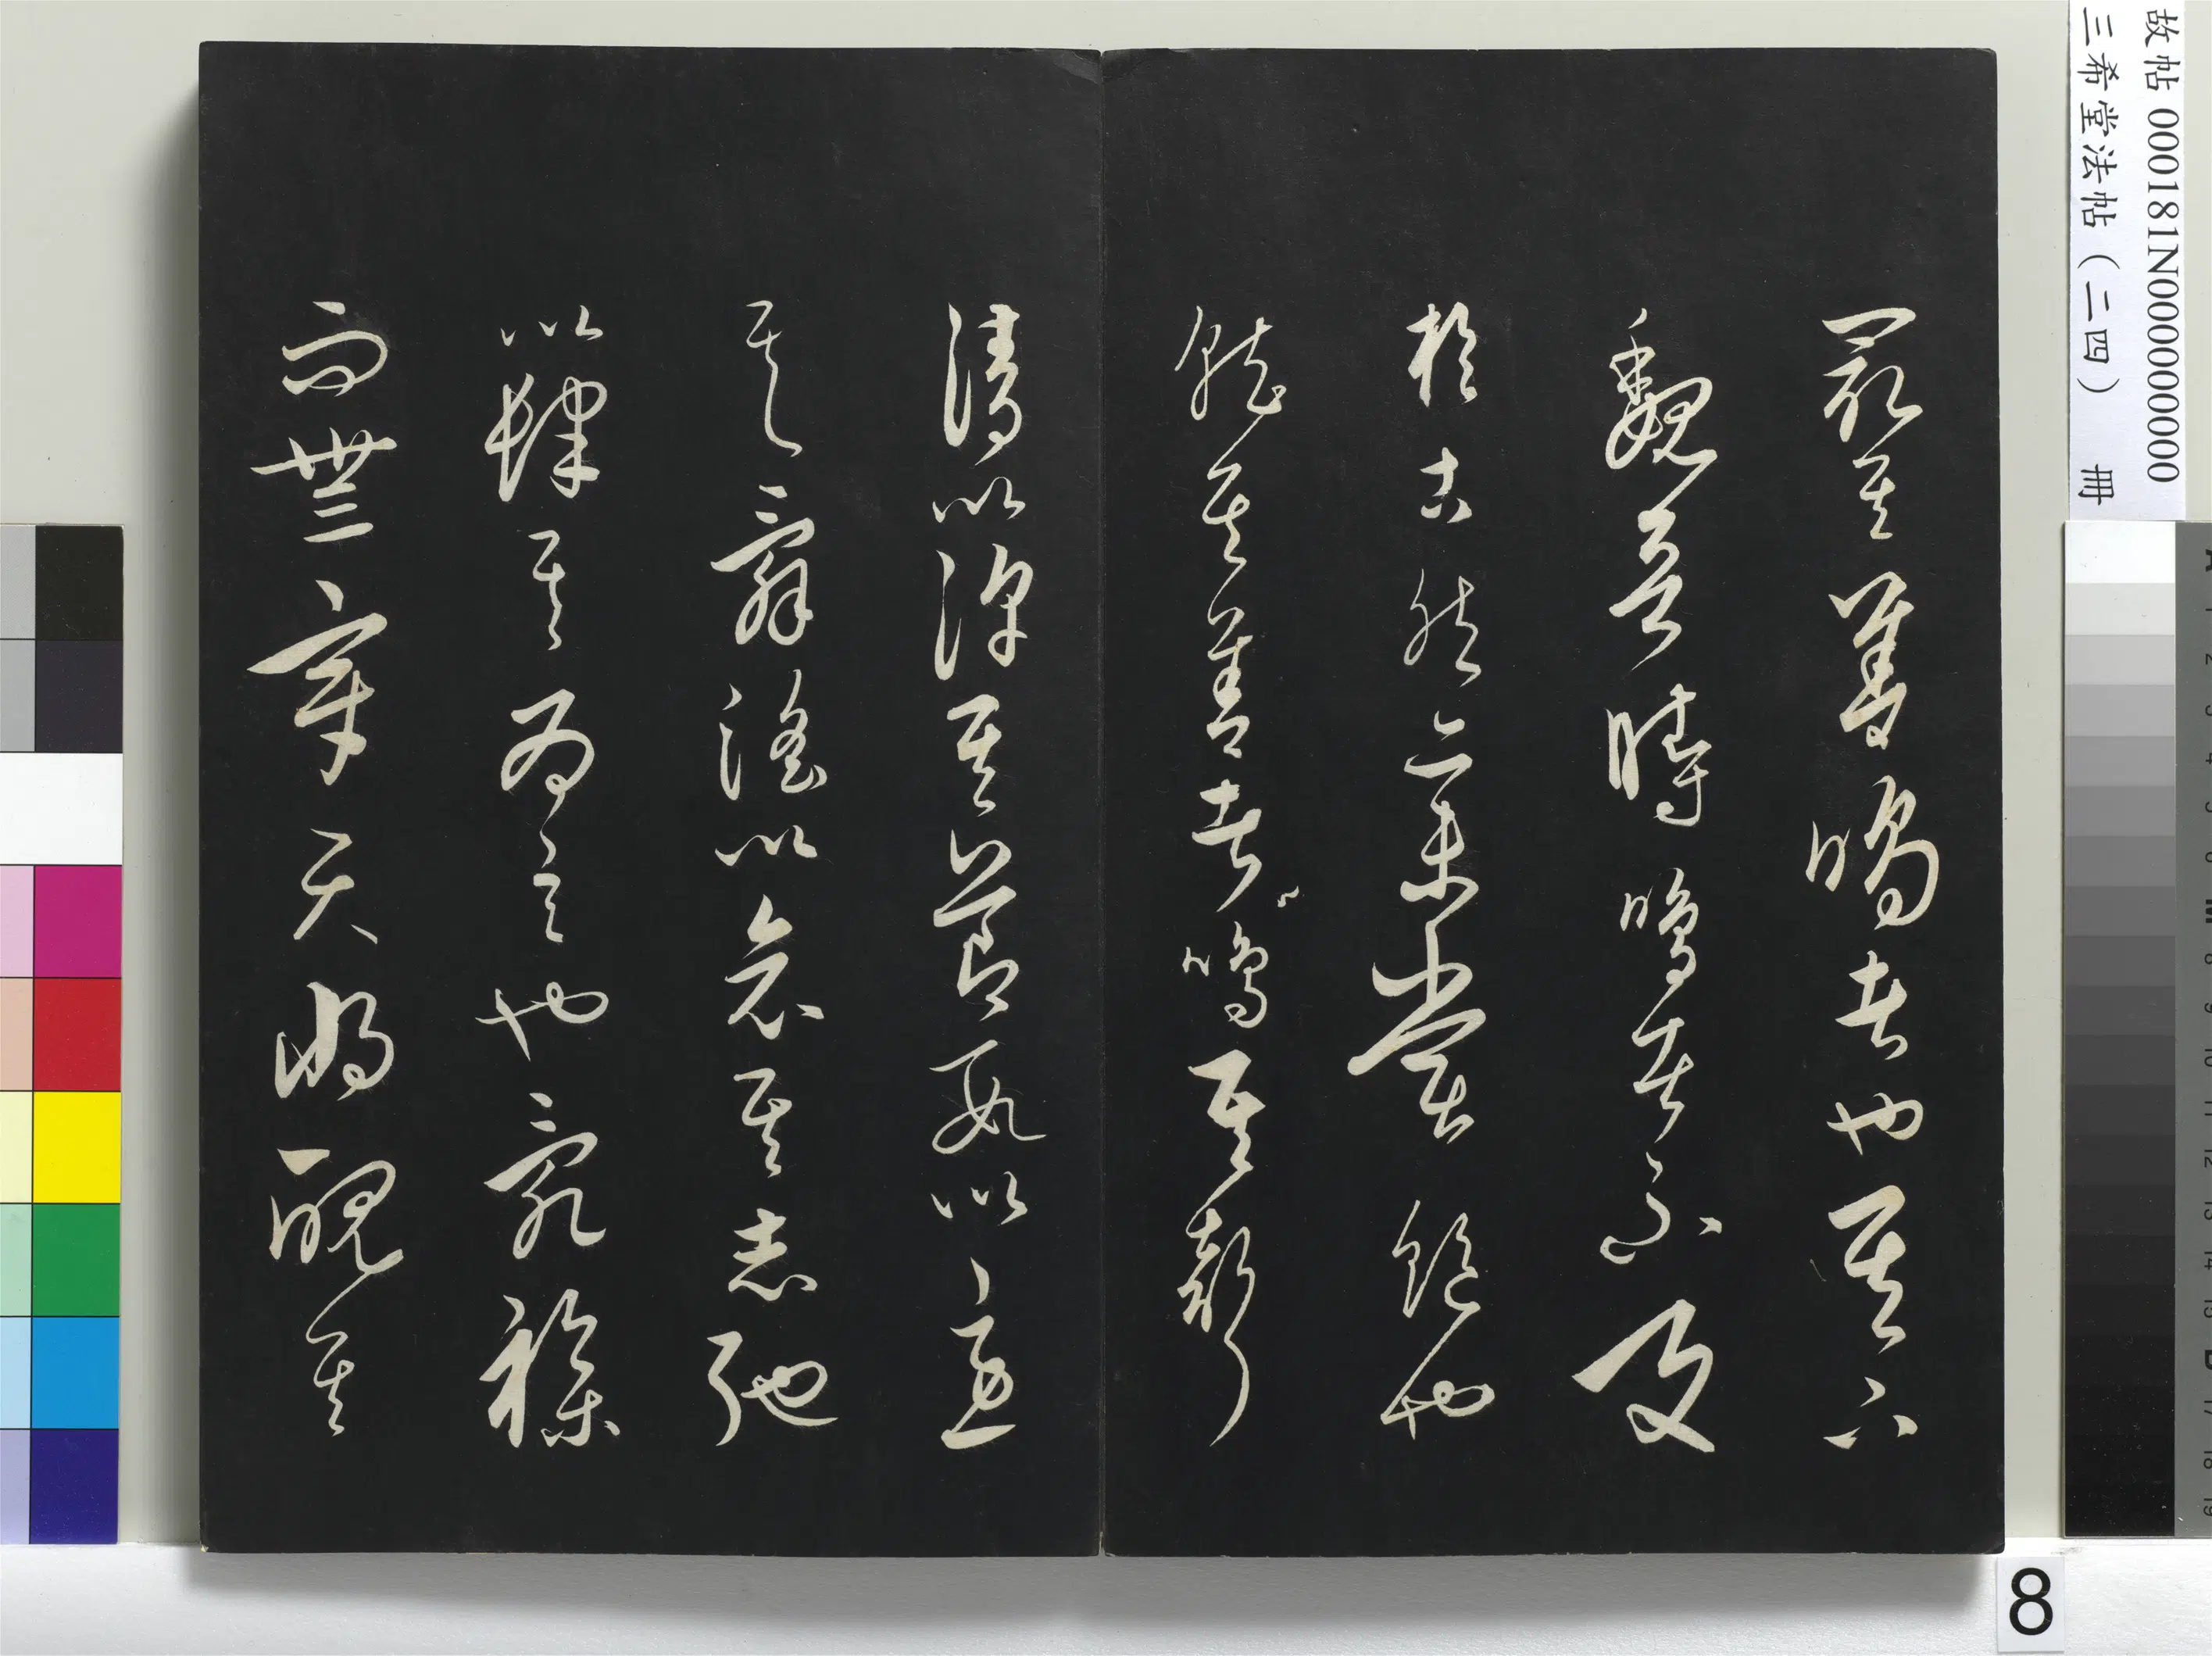 故帖 000181N000000000
三希堂法帖（二四） 冊
最其善鳴者也其下
魏晉時鳴者不及
於古然亦未嘗絕也
就其善者鳴其聲
清以浮其節數以急
其辭淫以哀其志弛
以肆其為言也亂雜
而無章天將醜其
8